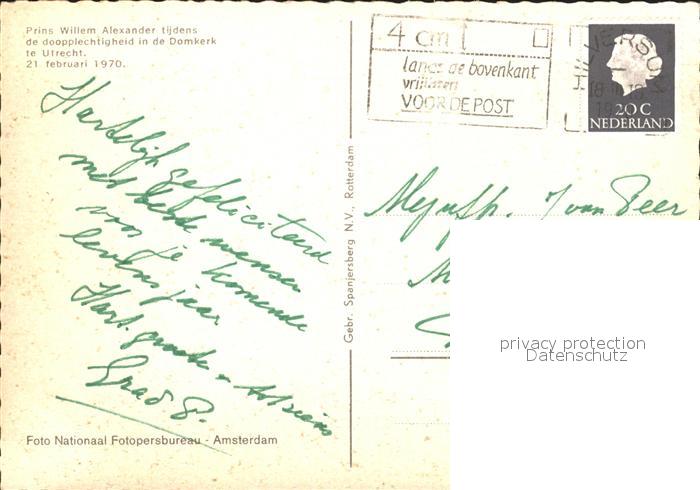 Prins Willem Alexander tijdens
de doopplechtigheid in de Domkerk
te Utrecht.
21 februari 1970.
Hartelijk gefeliciteerd
met beste wensen
voor je komende
levensjaar
Hart. groeten
Foto Nationaal Fotopersbureau - Amsterdam
Gebr. Spanjersberg N.V., Rotterdam
4 cm
langs de bovenkant
vrijlaten
VOOR DE POST
HILVERSUM
20 C
NEDERLAND
J van Peer
privacy protection
Datenschutz